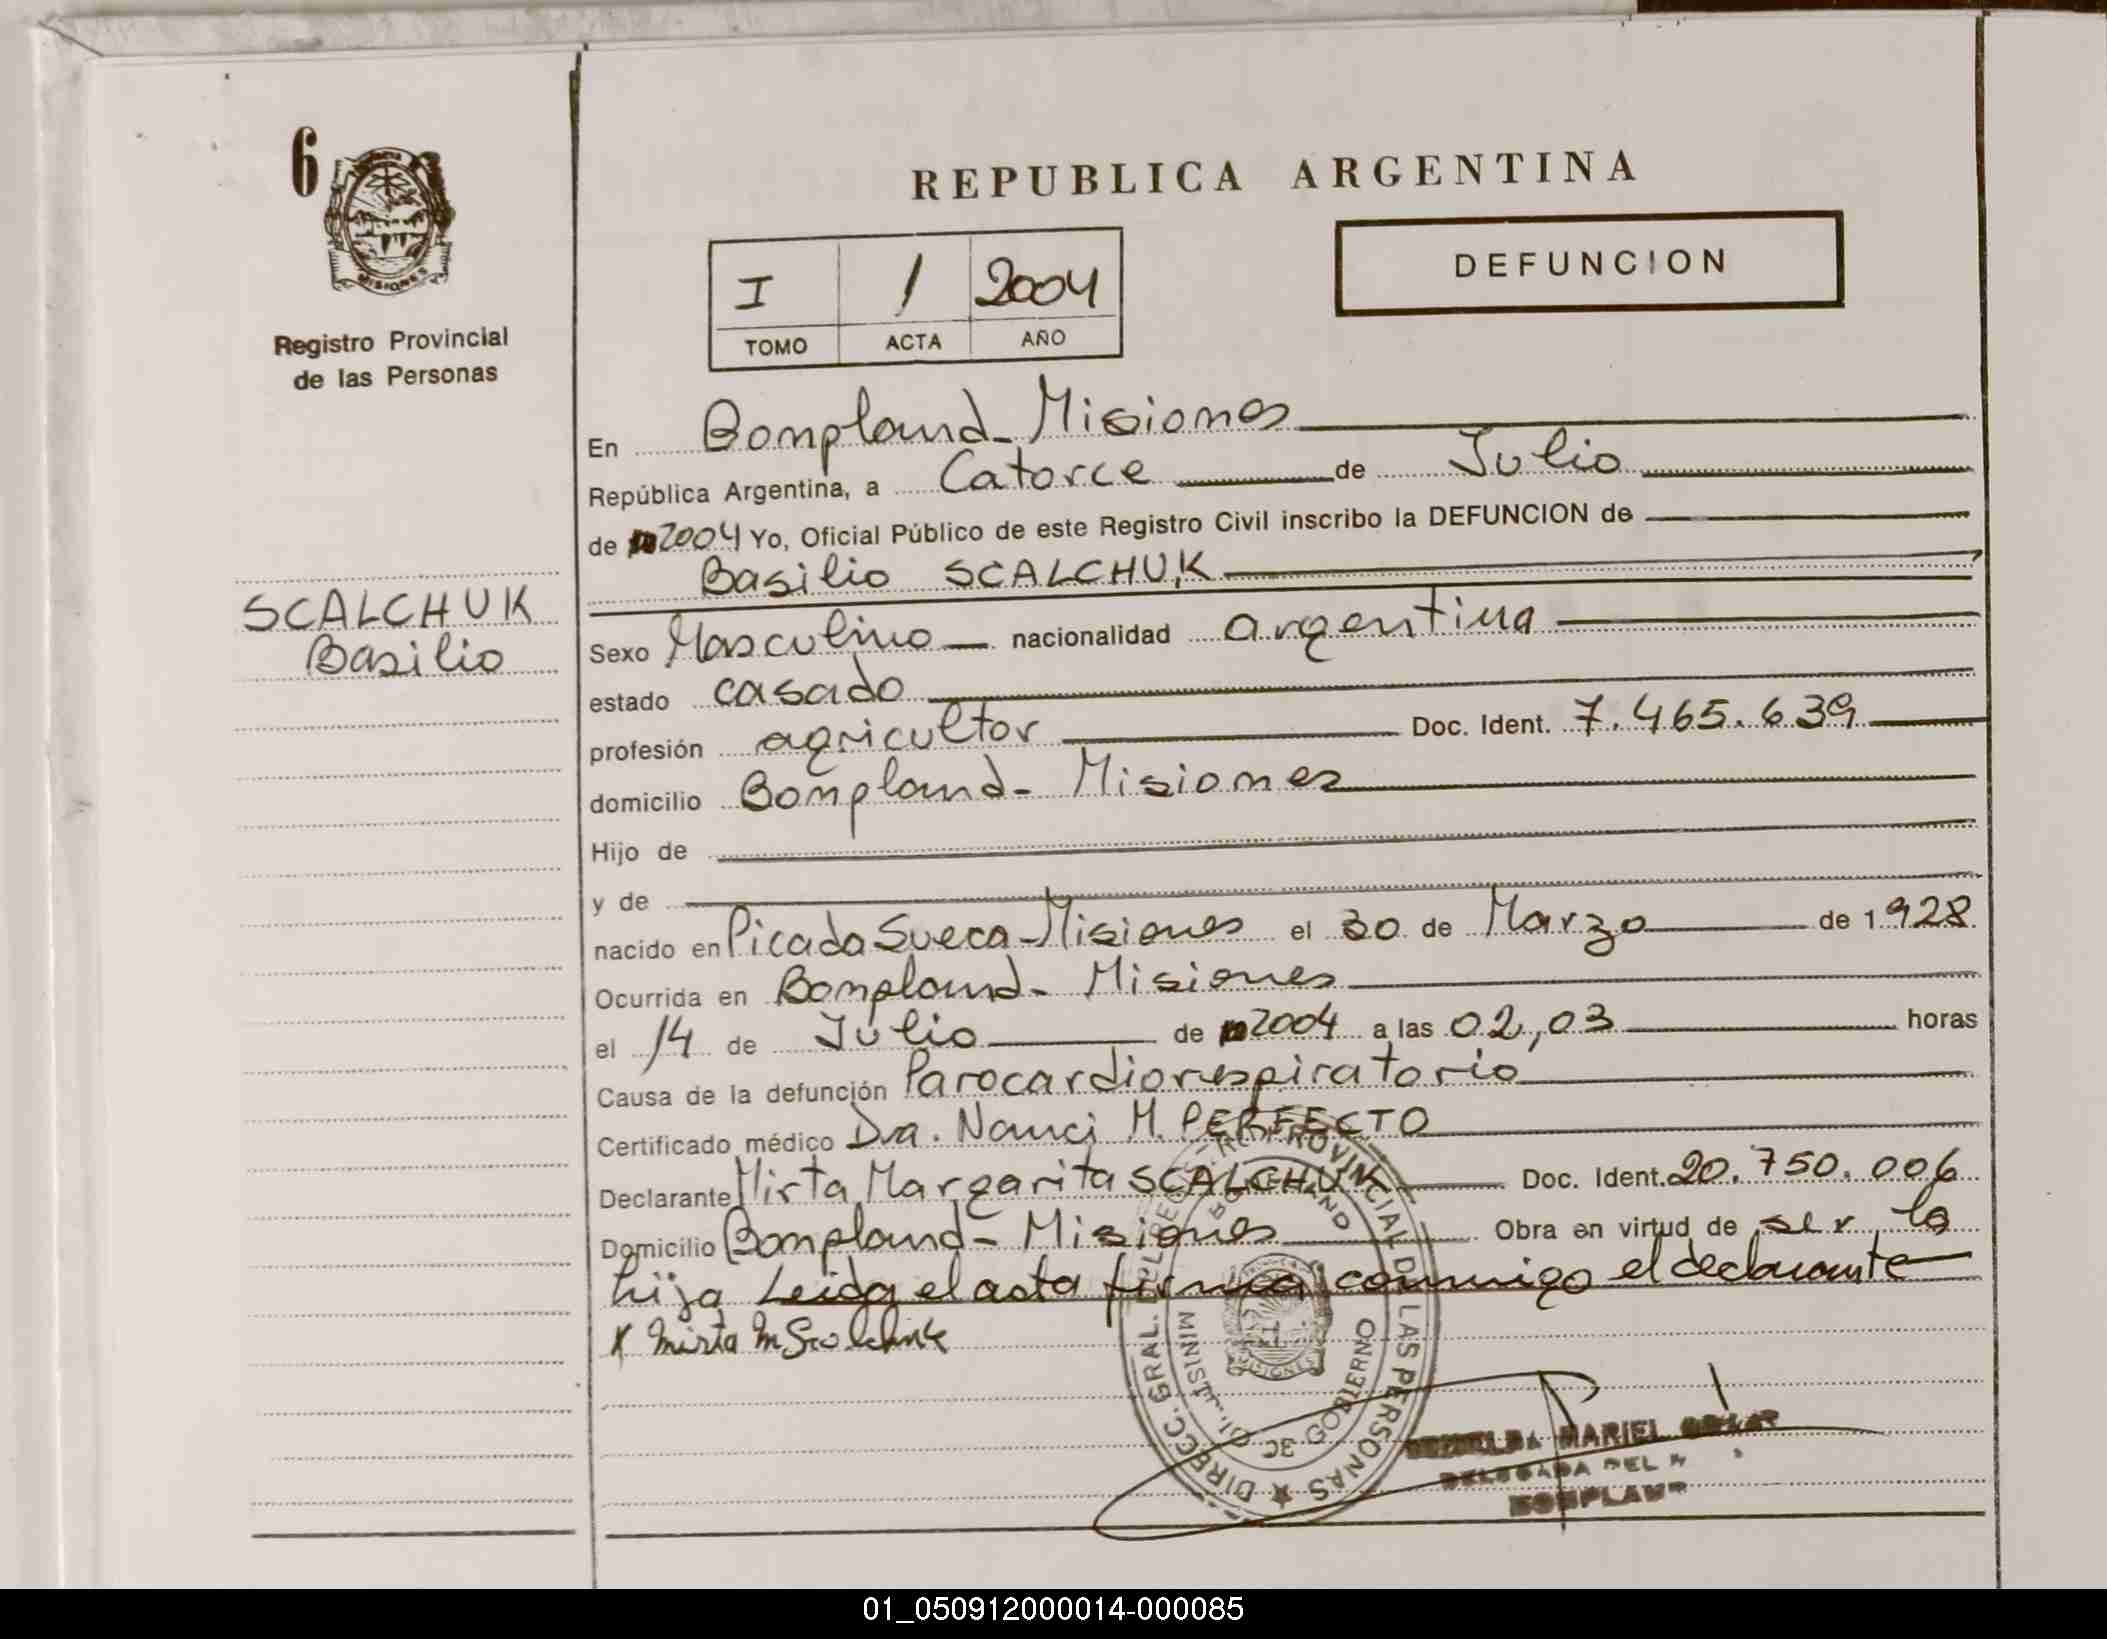 6
MISIONES
Registro Provincial
de las Personas
SCALCHUK
Basilio
REPUBLICA ARGENTINA
I / 1 / 2004
TOMO ACTA AÑO
DEFUNCION
En Bompland - Misiones
República Argentina, a Catorce de Julio
de 2004 Yo, Oficial Público de este Registro Civil inscribo la DEFUNCION de
Basilio SCALCHUK
Sexo Masculino nacionalidad argentina
estado casado
profesión agricultor Doc. Ident. 7.465.639
domicilio Bompland - Misiones
Hijo de
y de
nacido en Picada Sueca - Misiones el 30 de Marzo de 1928
Ocurrida en Bompland - Misiones
el 14 de Julio de 2004 a las 02,03 horas
Causa de la defunción Parocardiorespiratorio
Certificado médico Dra. Nanci M. PERFECTO
Declarante Mirta Margarita SCALCHUK Doc. Ident. 20.750.006
Domicilio Bompland - Misiones Obra en virtud de ser la
hija Leida el acta firma conmigo el declarante
x Mirta M Scalchuk
DIRECC. GRAL. DEL REG. PROVINCIAL DE LAS PERSONAS
GOBIERNO
MARIEL
DELEGADA DEL
BOMPLAND
01_050912000014-000085